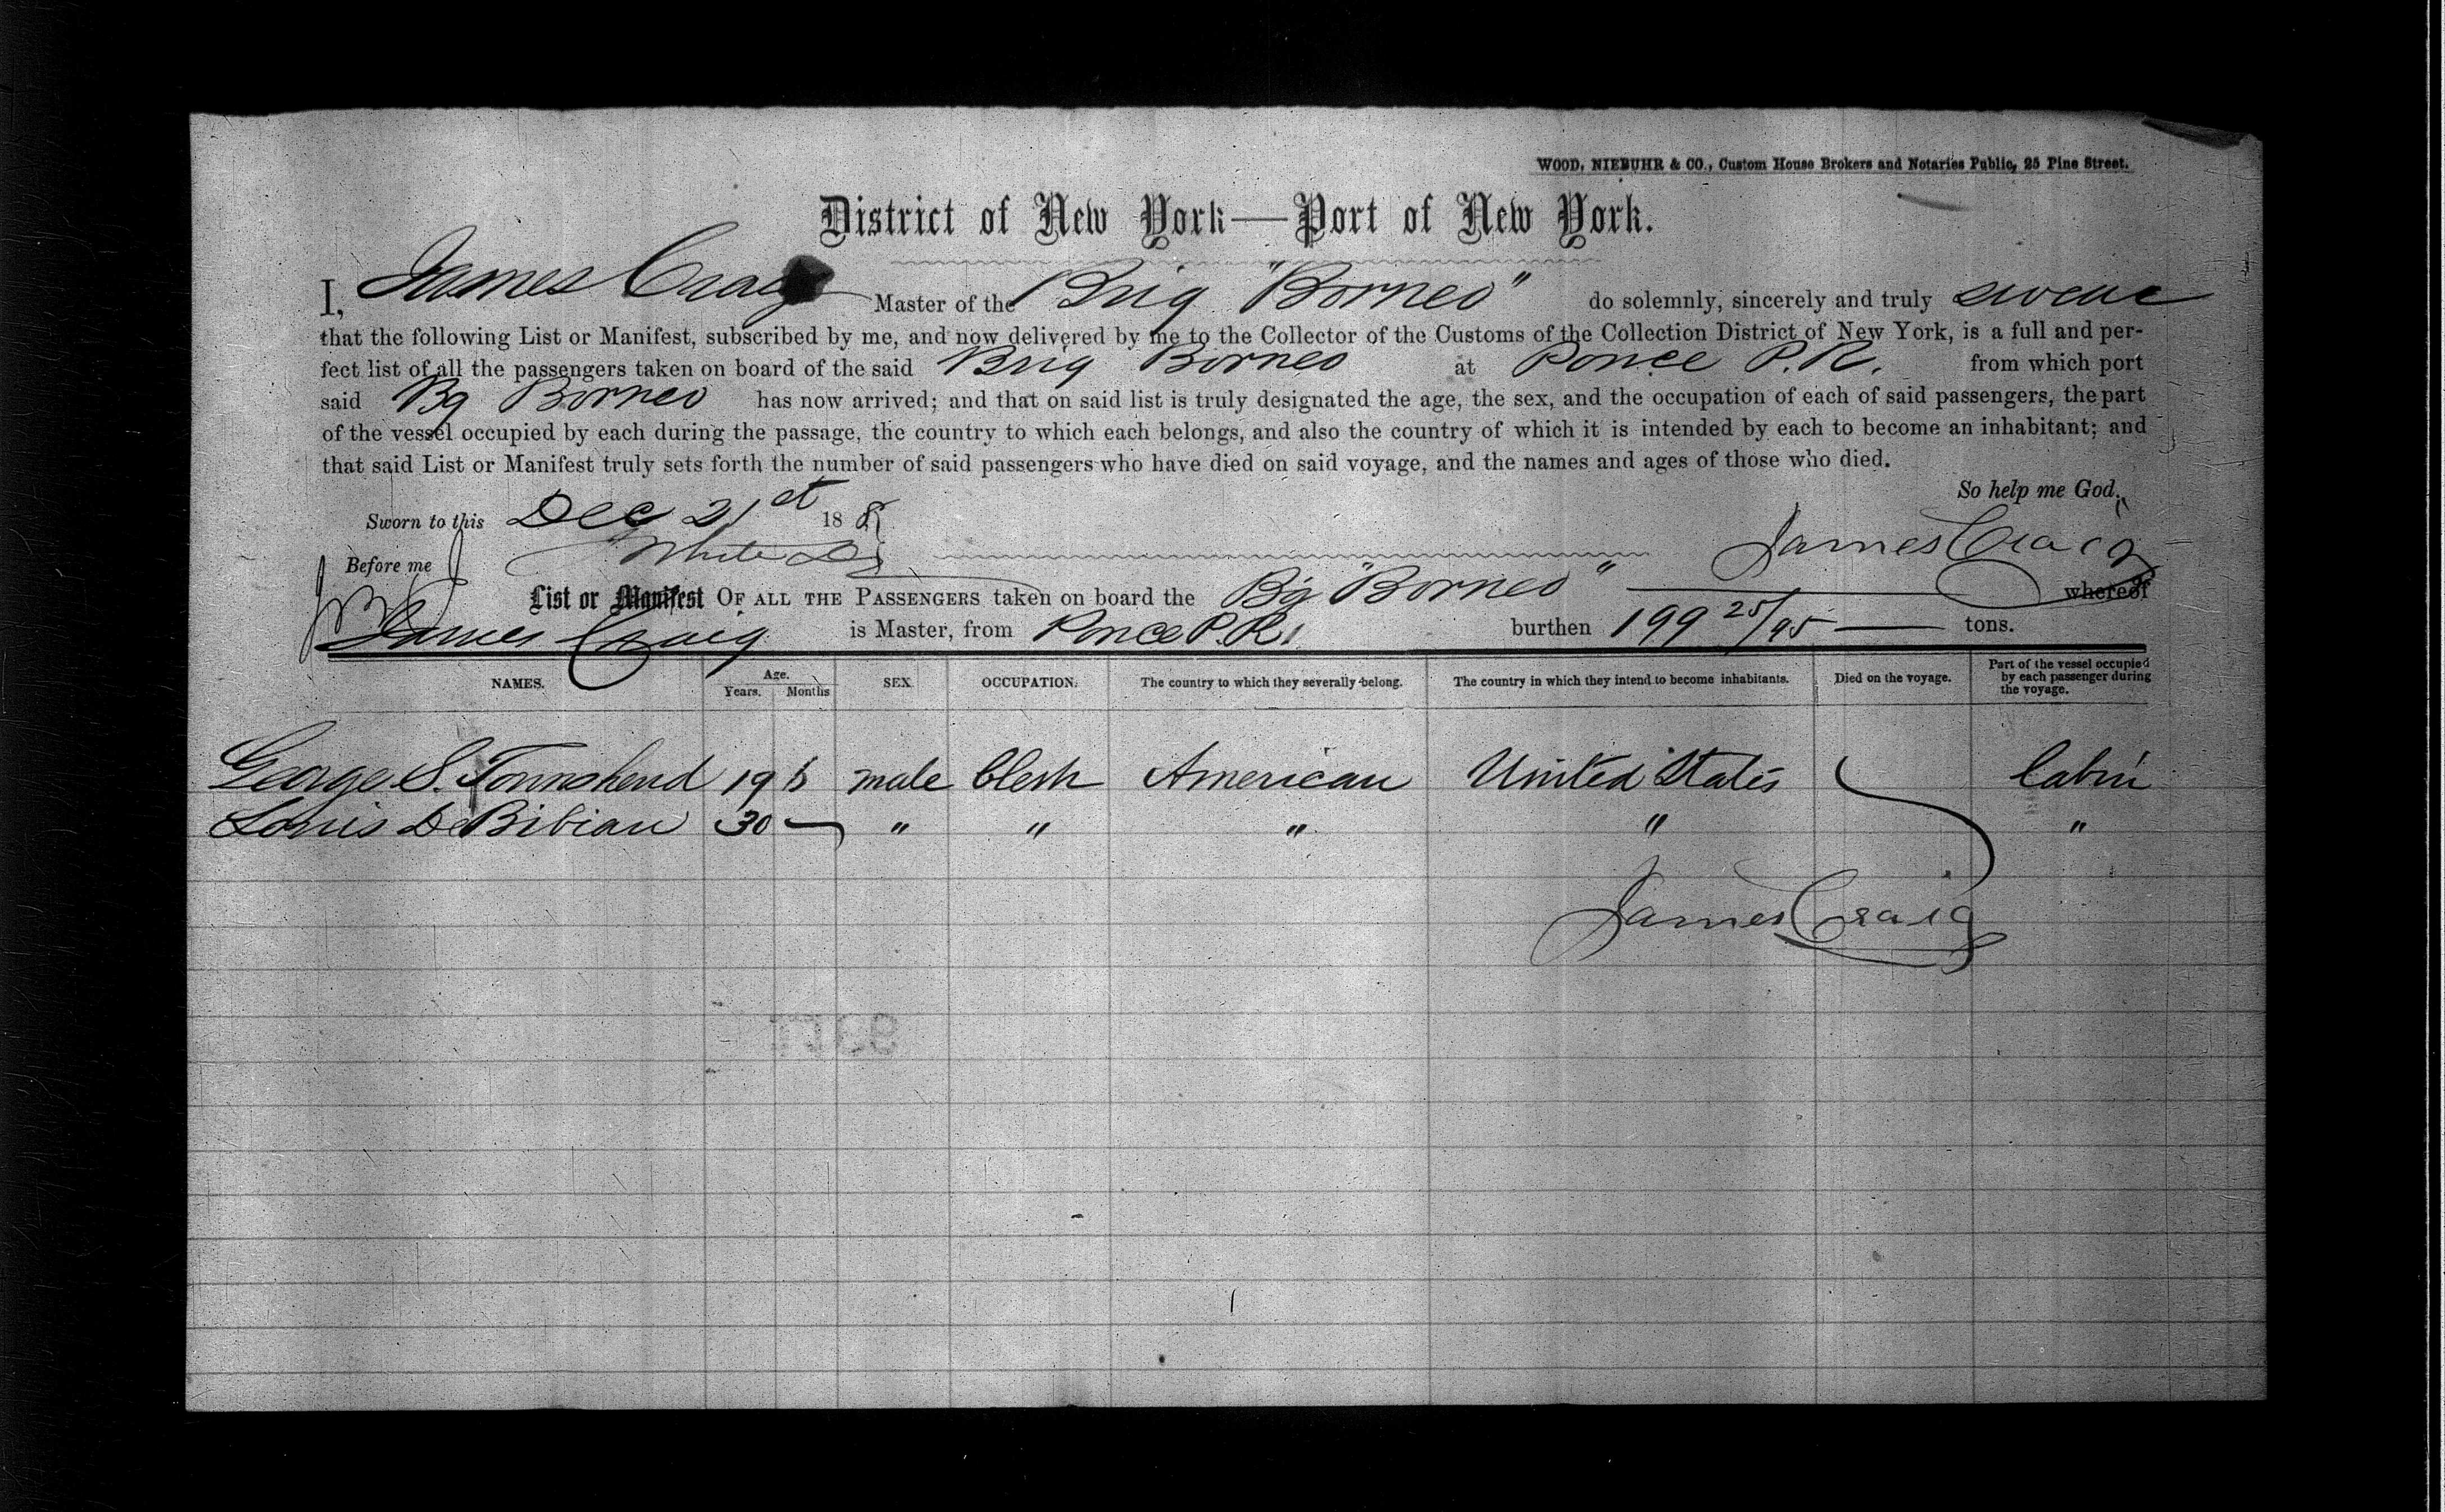 WOOD, NIEBUHR & CO., Custom House Brokers and Notaries Public, 25 Pine Street.
District of New York—Port of New York.
I, James Craig Master of the Brig "Borneo" do solemnly, sincerely and truly swear
that the following List or Manifest, subscribed by me, and now delivered by me to the Collector of the Customs of the Collection District of New York, is a full and per-
fect list of all the passengers taken on board of the said Brig Borneo at Ponce P.R. from which port
said Bg Borneo has now arrived; and that on said list is truly designated the age, the sex, and the occupation of each of said passengers, the part
of the vessel occupied by each during the passage, the country to which each belongs, and also the country of which it is intended by each to become an inhabitant; and
that said List or Manifest truly sets forth the number of said passengers who have died on said voyage, and the names and ages of those who died.
So help me God.
Sworn to this Dec 21st 188
Before me James Craig
List or Manifest OF ALL THE PASSENGERS taken on board the Bg "Borneo" whereof
James Craig is Master, from Ponce P.R. burthen 199 25/95 tons.
NAMES. Age. Years. Months SEX. OCCUPATION. The country to which they severally belong. The country in which they intend to become inhabitants. Died on the voyage. Part of the vessel occupied by each passenger during the voyage.
George S. Townshend 19 male Clerk American United States Cabin
Louis De Bibian 30 — " " " " "
James Craig